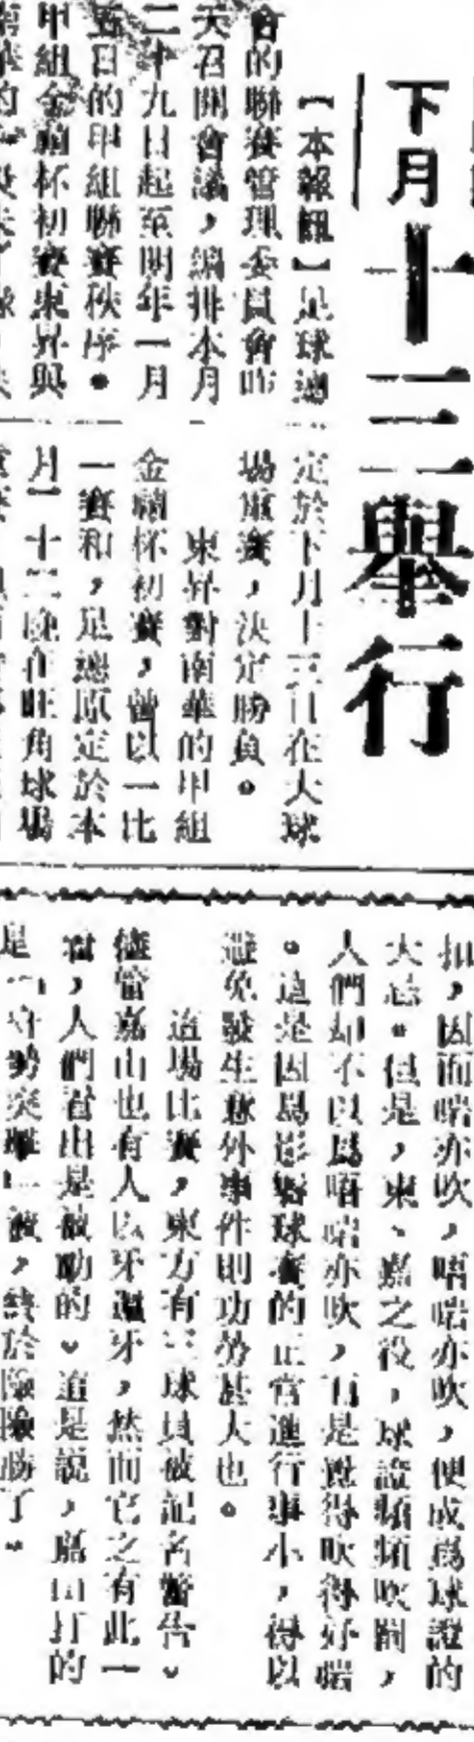 下月十三舉行
【本報訊】足球總
會的聯賽管理委員會昨
天召開會議，編排本月
二十九日起至明年一月
五日的甲組聯賽秩序。
甲組金禧杯初賽東昇與
定於下月十三日在大球
場重賽，決定勝負。
東昇對南華的甲組
金禧杯初賽，曾以一比
一賽和，足總原定於本
月二十二晚在旺角球場
因而啱亦吹，唔啱亦吹，便成為球證的
大忌。但是，東、嘉之役，球證頻頻吹罰，
人們却不以為唔啱亦吹，有是覺得吹得好啱
。這是因為影響球賽的正常進行事小，得以
避免發生意外事件則功勞甚大也。
這場比賽，東方有三球員被記名警告。
儘管嘉山也有人以牙還牙，然而它之有此一
着，人們看出是被動的。這是說，嘉山打的
是「守勢突擊」波，終於險險勝了。